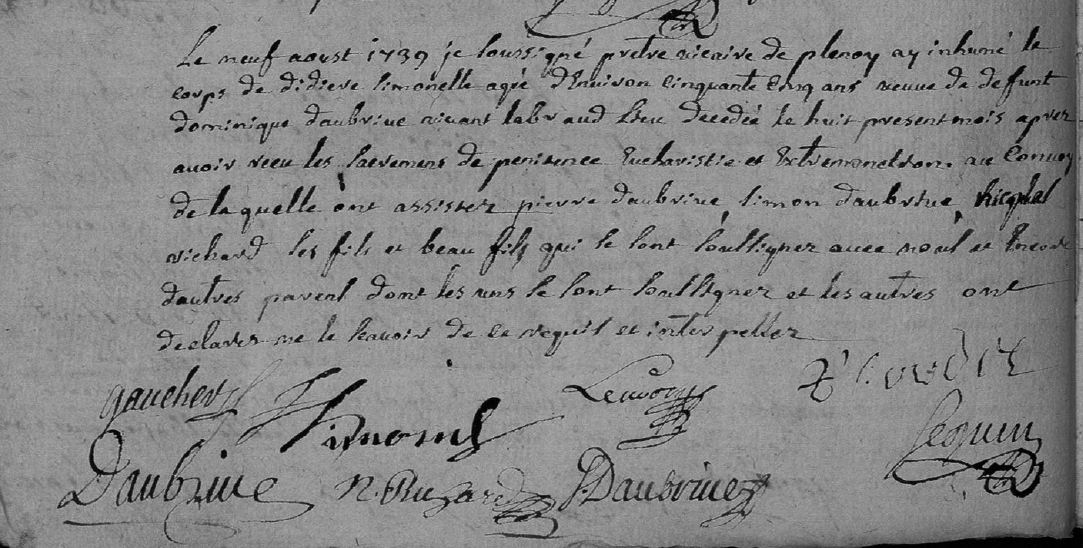 Le neuf aoust 1739 je soussigné pretre vicaire de plenoy ay inhumé le
corps de didiere simonelle agée d'Environ cinquante cinq ans veuve de defunt
dominique daubrive vivant labr aud Lieu decedée le huit present mois aprez
avoir receu les sacremens de penitence Eucharistie et Extremonction. au Convoy
de laquelle ont assistez pierre daubrive, simon daubrive
richard les fils et beau fils qui se sont soussignez avec nous et Encore
dautres parens dont les uns se sont soussignez et les autres ont
declarez ne le scavoir de ce requis et interpellez
gaucher
Simonel
Daubrive
P. Daubrive
Seguin